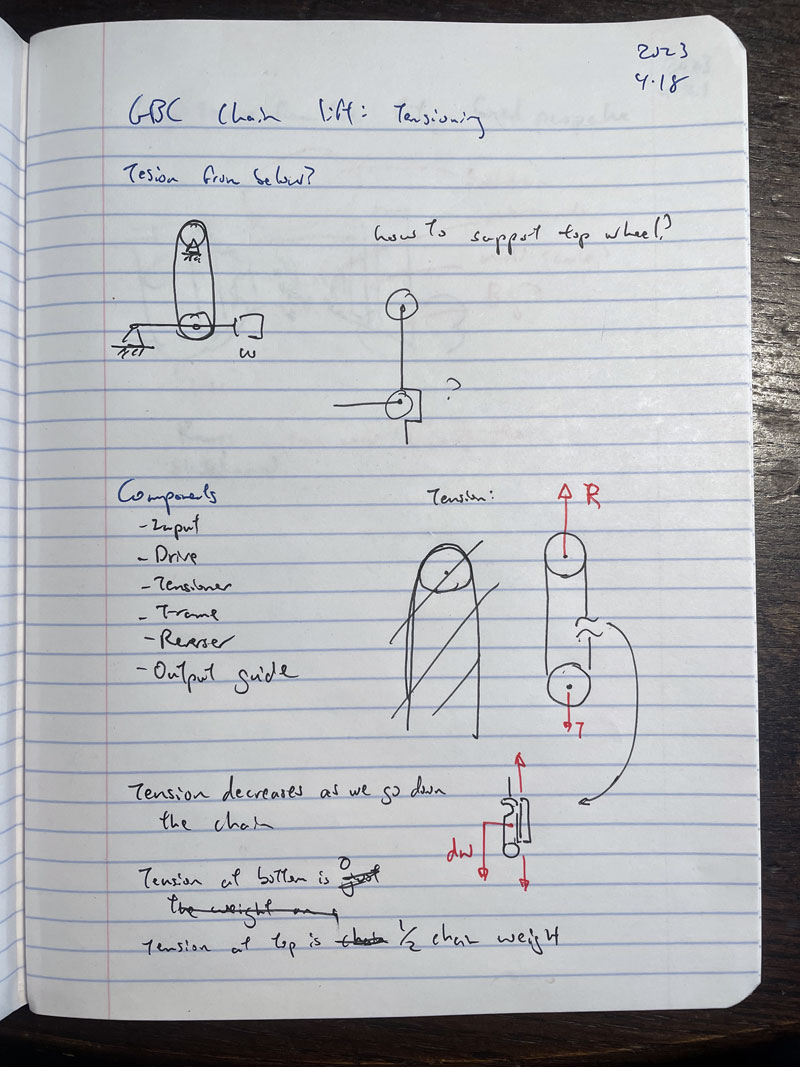 2023
4.18
GBC Chain lift: Tensioning
Tesion from below?
how to support top wheel?
w
?
Components
Tension:
R
- Input
- Drive
- Tensioner
- Frame
- Reverser
- Output guide
T
Tension decreases as we go down
the chain
dw
Tension at bottom is 0
Tension at top is 1/2 chain weight